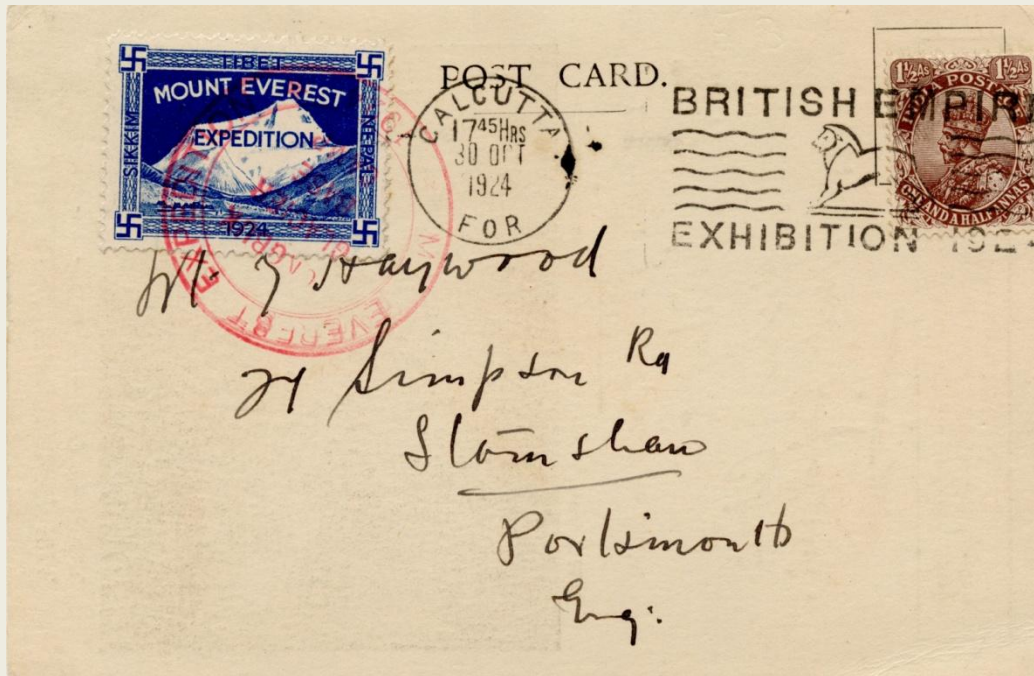 TIBET
MOUNT EVEREST
EXPEDITION
SIKKIM
NEPAL
1924
EVEREST
POST CARD.
CALCUTTA
17 45 HRS
30 OCT
1924
FOR
BRITISH EMPIR
EXHIBITION 192
1½ As 1½ As
INDIA POSTAGE
ONE AND A HALF ANNAS
Haywood
24 Simpson Rd
Stamshaw
Portsmouth
Eng.